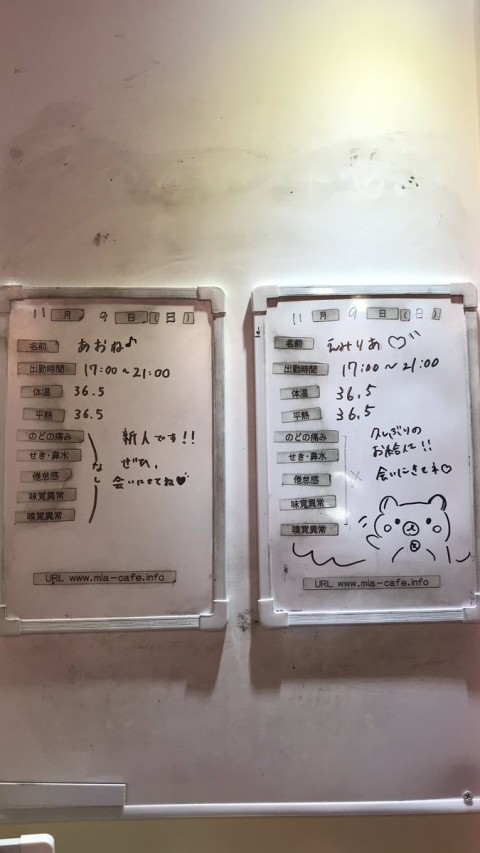 11月9日(日)
名前 あおね♪
出勤時間 17:00～21:00
体温 36.5
平熱 36.5
のどの痛み
せき・鼻水
倦怠感
味覚異常
嗅覚異常
なし
新人です!!
ぜひ、
会いにきてね♥
URL www.mia-cafe.info
11月9日(日)
名前 えみりあ♡
出勤時間 17:00～21:00
体温 36.5
平熱 36.5
のどの痛み
せき・鼻水
倦怠感
味覚異常
嗅覚異常
×
久しぶりの
お給仕!!
会いにきてネ♡
URL www.mia-cafe.info